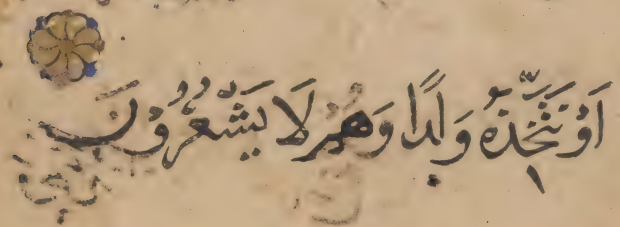 اَوْ نَتَّخِذَهُ وَلَدًا وَهُمْ لَا يَشْعُرُوْنَ